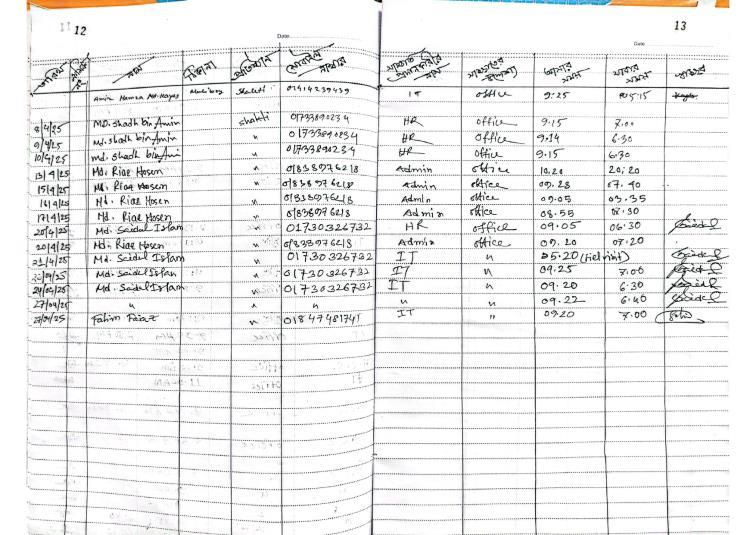 11 12
13
Date
Date
তারিখ নাম ঠিকানা প্রতিষ্ঠান মোবাইল নাম্বার সাক্ষাত নাম সাক্ষাতের উদ্দেশ্য আসার সময় যাবার সময় স্বাক্ষর
Amir Hamza Md. Shakti 01914239439 IT office 9:25 5:15
8/4/25 MD. shadh bin Amin shakti 01733890234 HR office 9.15 7.00
9/4/25 Md. shadh bin Amin " 01733890234 HR office 9.14 6.30
10/4/25 md. shadh bin Amin " 01733890234 HR office 9.15 6.30
13/4/25 Md. Riaz Hosen " 01838976218 Admin office 10.20 20:20
15/4/25 Md. Riaz Hosen " 01838976218 Admin office 09.28 07.40
16/4/25 Md. Riaz Hosen " 01838976218 Admin office 09.05 03.35
17/4/25 Md. Riaz Hosen " 01838976218 Admin office 08.55 06.30
20/4/25 Md. Saidul Islam " 01730326732 HR office 09.05 06.30 Saidul
20/4/25 Md. Riaz Hosen " 01838976218 Admin office 09.20 07.20
21/4/25 Md. Saidul Islam " 01730326732 IT " 05.20 (Field visit) Saidul
Md. Saidul Islam " 01730326732 IT " 09.25 7.00 Saidul
24/04/25 Md. Saidul Islam " 01730326732 IT " 09.20 6.30 Saidul
27/04/25 " " " " " 09.22 6.40 Saidul
27/04/25 Fahim Faiaz " 01847481741 IT " 09.20 7.00